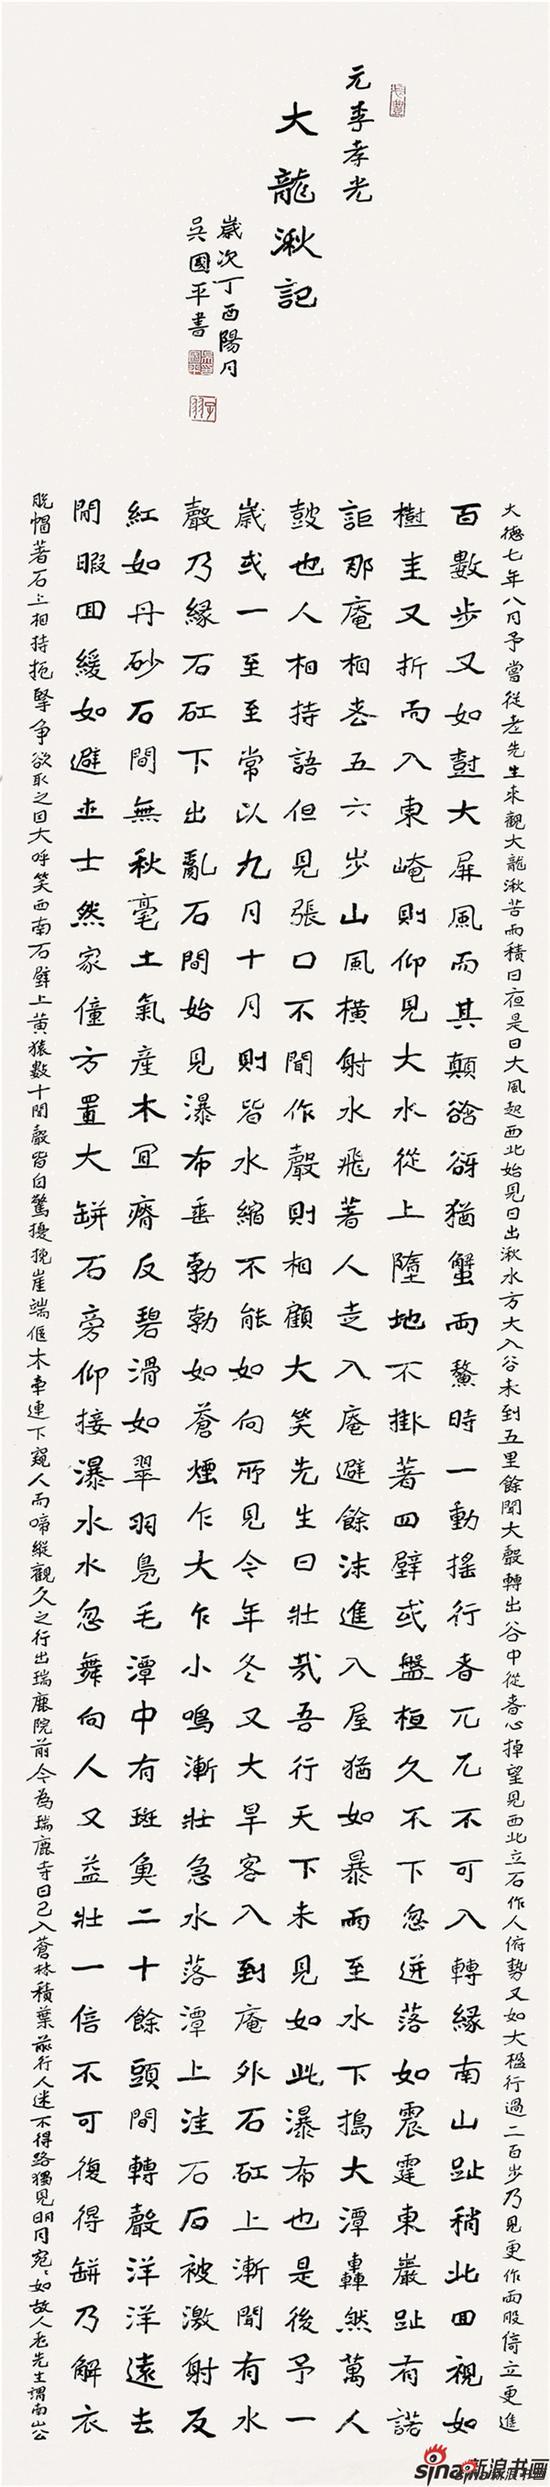 元李孝光
大龍湫記
歲次丁酉陽月
吳國平書
大德七年八月予嘗從老先生來觀大龍湫苦雨積日夜是日大風起西北始見日出湫水方大入谷未到五里餘聞大聲轉出谷中從者心掉望見西北立石作人俯勢又如大楹行過二百步乃見更作兩股倚立更進
百數步又如尌大屏風而其顛谽谺猶蟹兩螯時一動搖行者兀兀不可入轉緣南山趾稍北回視如
樹圭又折而入東崦則仰見大水從上墮地不掛著四壁或盤桓久不下忽迸落如震霆東巖趾有諾
詎那庵相去五六步山風橫射水飛著人走入庵避餘沫進入屋猶如暴雨至水下搗大潭轟然萬人
鼓也人相持語但見張口不聞作聲則相顧大笑先生曰壯哉吾行天下未見如此瀑布也是後予一
歲或一至至常以九月十月則皆水縮不能如向所見今年冬又大旱客入到庵外石矼上漸聞有水
聲乃緣石矼下出亂石間始見瀑布垂勃勃如蒼煙乍大乍小鳴漸壯急水落潭上洼石石被激射反
紅如丹砂石間無秋毫土氣產木宜瘠反碧滑如翠羽鳧毛潭中有斑魚二十餘頭聞轉聲洋洋遠去
閒暇回緩如避世士然家僮方置大缾石旁仰接瀑水水忽舞向人又益壯一信不可復得缾乃解衣
脫帽著石上相持扼掔爭欲取之因大呼笑西南石壁上黃猿數十聞聲皆自驚擾挽崖端偃木牽連下窺人而啼縱觀久之行出瑞鹿院前今為瑞鹿寺日已入蒼林積葉前行人迷不得路獨見明月宛宛如故人老先生謂南山公
sina新浪书画